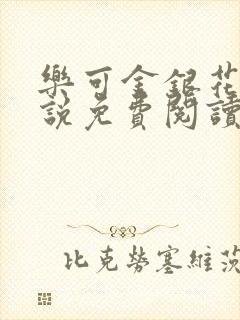 樂可金銀花
說免費閱讀
比克勞塞維茨